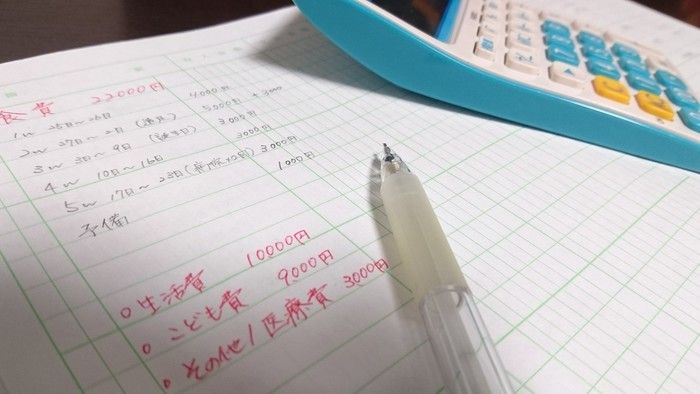 食費 22000円
1w 25日~26日 4,000円
2w 27日~2日 5,000円 + 3000
3w 3日~9日 3,000円
4w 10日~16日 2000円
5w 17日~23日 3,000円
予備 1000円
○生活費 10000円
○こども費 9000円
○その他/医療費 3000円